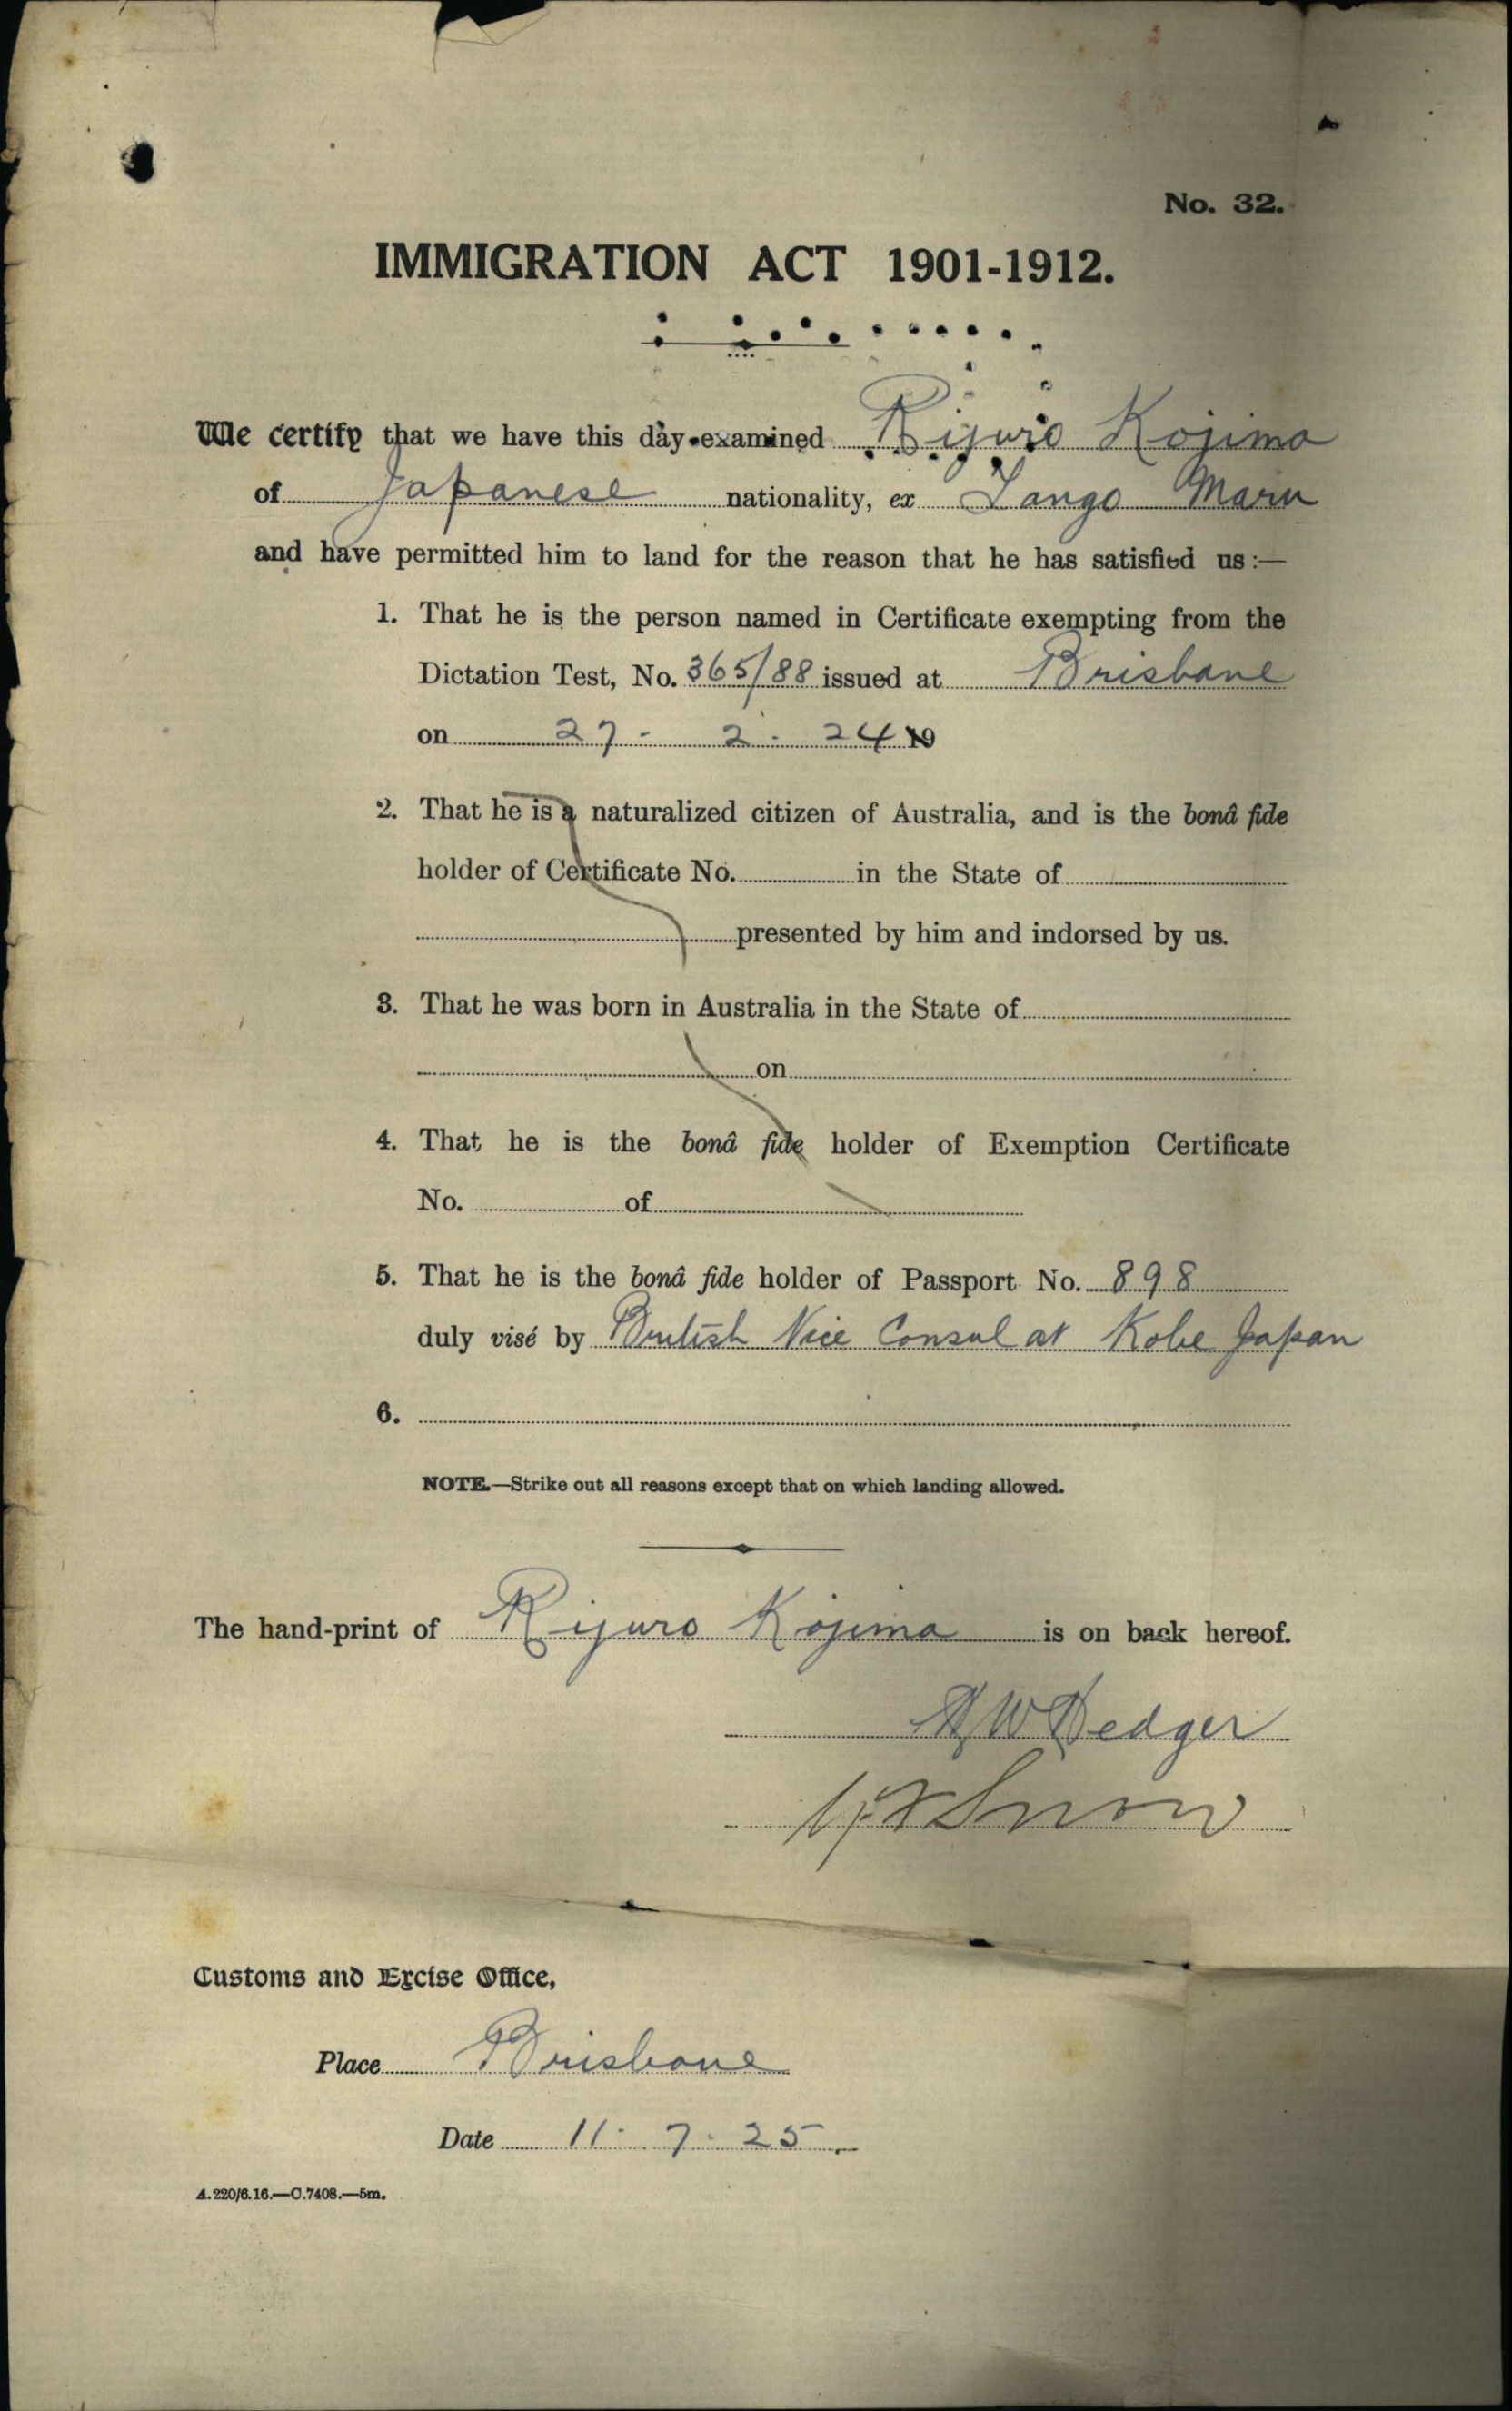 No. 32.
IMMIGRATION ACT 1901-1912.
We certify that we have this day examined Rijuro Kojima
of Japanese nationality, ex Tango Maru
and have permitted him to land for the reason that he has satisfied us:—
1. That he is the person named in Certificate exempting from the
Dictation Test, No. 365/88 issued at Brisbane
on 27 - 2 - 24 19
2. That he is a naturalized citizen of Australia, and is the bonâ fide
holder of Certificate No. in the State of
presented by him and indorsed by us.
3. That he was born in Australia in the State of
on
4. That he is the bonâ fide holder of Exemption Certificate
No. of
5. That he is the bonâ fide holder of Passport No. 898
duly visé by British Vice Consul at Kobe Japan
6.
NOTE.—Strike out all reasons except that on which landing allowed.
The hand-print of Rijuro Kojima is on back hereof.
Hedger
Snow
Customs and Excise Office,
Place Brisbane
Date 11. 7. 25.
A.220/6.16.—C.7408.—5m.